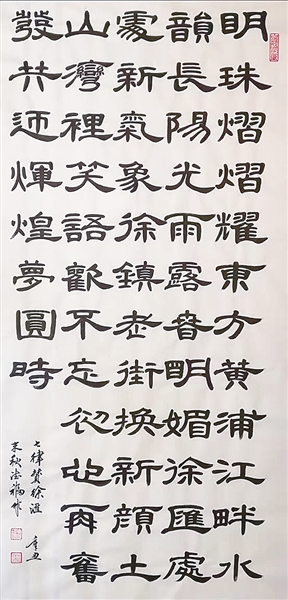 明珠熠熠耀東方黃浦江畔水
韻長陽光雨露春明媚徐匯處
處新氣象徐鎮老街換新顏土
山灣裡笑語歡不忘初心再奮
發共迎輝煌夢圓時
七律贊徐滙 辛丑